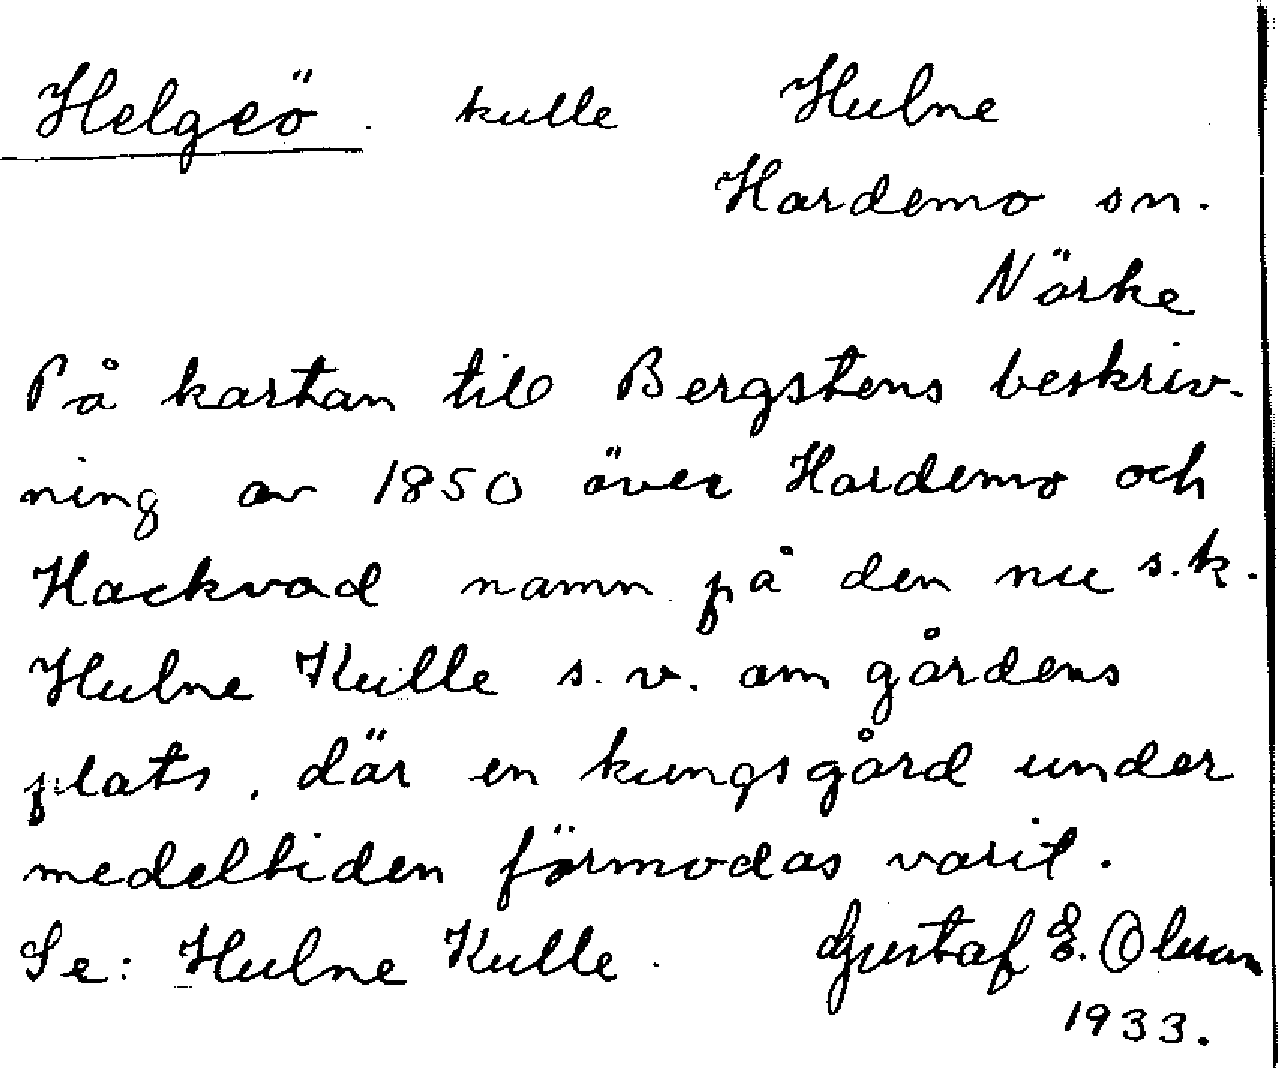 Helgeö. kulle Hulne
Hardemo sn.
Närke
På kartan till Bergstens beskriv-
ning av 1850 över Hardemo och
Hackvad namn på den nu s.k.
Hulne Kulle s.v. om gårdens
plats, där en kungsgård under
medeltiden förmodas varit.
Se: Hulne Kulle. Gustaf E. Olsson
1933.